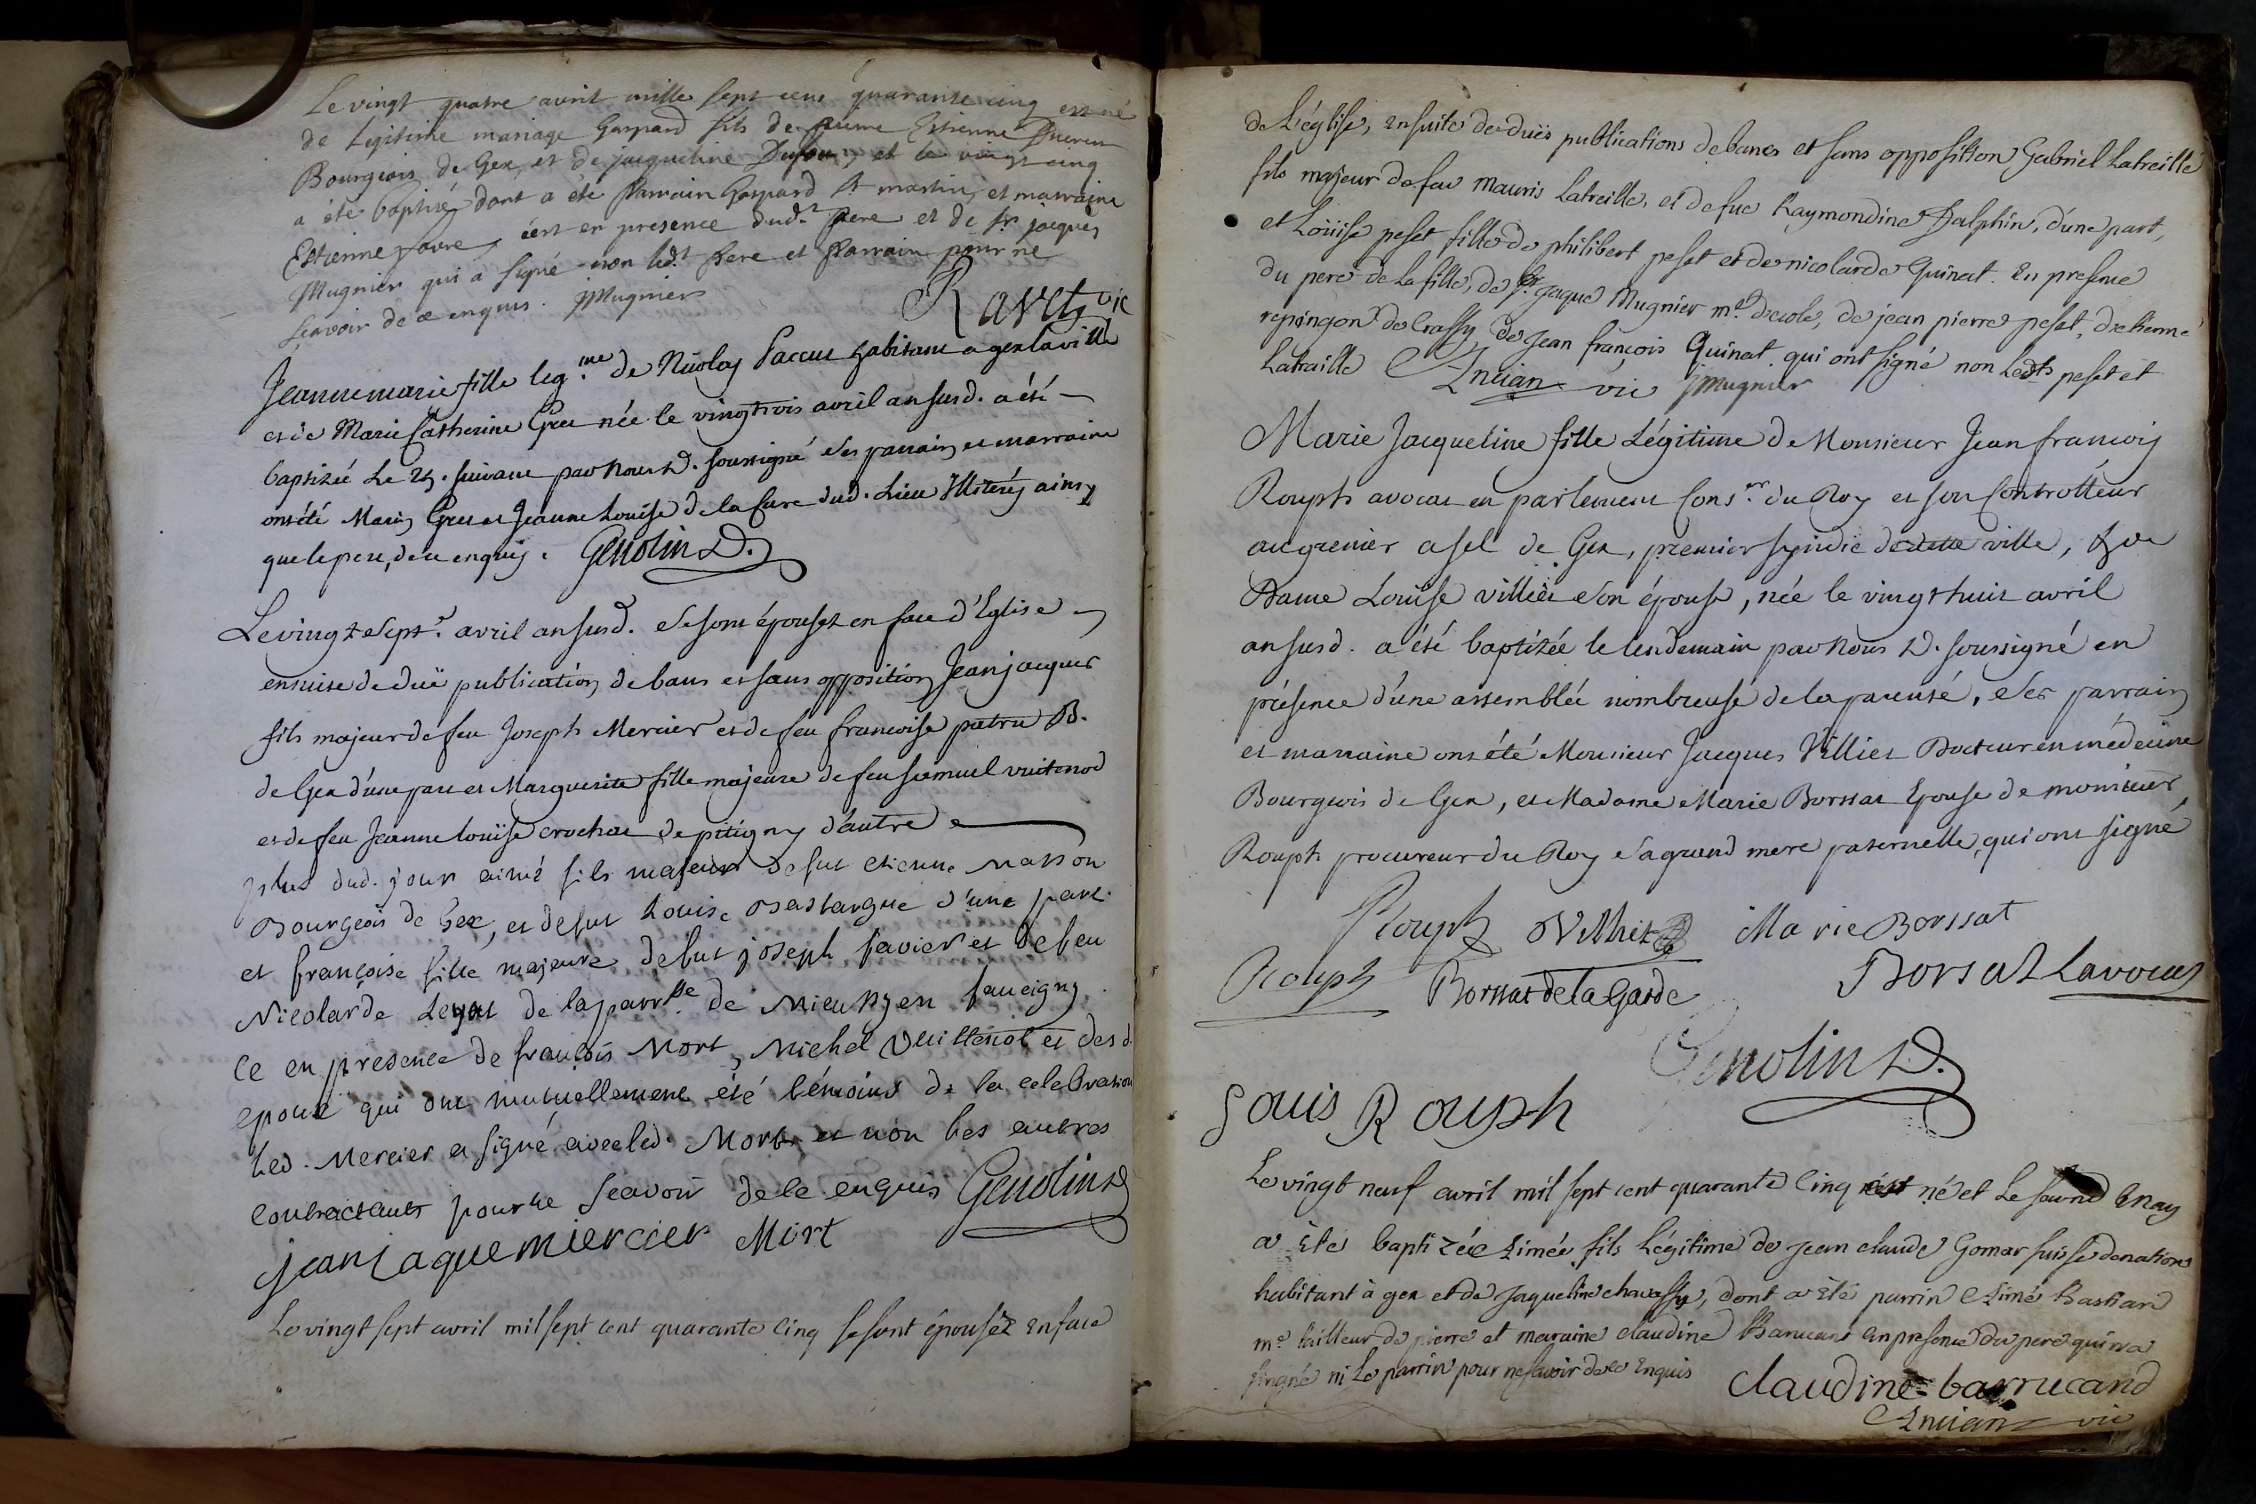 Le vingt quatre avril mille sept cens quarante cinq est né
de Legitime mariage Gaspard fils de Estienne
Bourgeois de Gex, et de jacqueline Dufour, et le vingt cinq
a été baptisé dont a été Parrain Gaspard St martin, et marraine
Estienne favre, c'est en presence dud.t pere et de Sr. jacques
Mugnier qui a signé non led.t Pere et Parrain pour ne
scavoir de ce enquis. JMugnier Ravet vic
Jeannemarie fille leg.me de Nicolas Paccus habitant a gex la ville
et de Marie Catherine Gros née le vingtrois avril an susd. a été
baptizée le 25. suivant par Nous D. soussigné ses parrain et marraine
ont été Marin Gros et Jeanne Louise de la Cure dud. Lieu Illiterés ainsy
que le pere, de ce enquis. Genolin D.
Le vingt sept.e avril an susd. se sont épousez en face d'Eglise
ensuite de duë publication de bans et sans opposition Jeanjacques
fils majeur de feu Joseph Mercier et de feu francoise patru B.
de Gex d'une part et Marguerite fille majeure de feu samuel vuitenod
et de feu Jeanne Louïse crochat de pitigny d'autre
plus dud. jour aimé fils majeur de fut etienne Masson
Bourgeois de Gex, et de fut Louise Dastargue d'une part.
et françoise fille majeure de fut joseph favier et de feu
Nicolarde de la parr.sse de Mieussy en faucigny.
Ce en presence de françois Mort, Michel Vuillenot et des d.
epoux qui ont mutuellement été témoins de la celebration
led. Mercier a signé avec led. Mort et non les autres
contractants pour ne scavoir de ce enquis Genolin D
jean jaque miercier Mort
Le vingt sept avril mil sept cent quarante cinq se sont épousèz en face
de L'église, ensuite de duës publications de bancs et sans opposition Gabriel Latreille
fils majeur de feu Mauris Latreille, et de fue Raymondine Dalphin, d'une part,
et Loüise peset fille de philibert peset et de nicolarde Quinat. En presence
du pere de la fille, de Sr. Jaque Mugnier m.e d'ecole, de jean pierre peset, d'etienne
repingon de Crassy, de Jean françois Quinat qui ont signé non Lesdts peset et
Latraille Ancian vic JMugnier
Marie Jacqueline fille Légitime de Monsieur Jean francois
Rouph avocat en parlement Cons.er du Roy et son Controlleur
au grenier a sel de Gex, premier syndic de cette ville, & de
Dame Louïse villiet son épouse, née le vingthuit avril
an susd. a été baptizée le lendemain par Nous D. soussigné en
présence d'une assemblée nombreuse de la parenté, ses parrain
et marraine ont été Monsieur Jacques Villiet Docteur en médecine
Bourgeois de Gex, et Madame Marie Borssat Epouse de monsieur
Rouph procureur du Roy sa grand mere paternelle, qui ont signé
Rouph Villiet Marie Borssat
Rouph Borssat de la Garde Borsat Lavocat
Genolin D.
Louis Rouph
Le vingt neuf avril mil sept cent quarante cinq est né et Le second
a été baptizée Aimée fils Légitime de Jean claude Gomar suisse de nation
habitant à gex et de Jaqueline chavassy, dont a été parrin Aimé Bastiard
m.e tailleur de pierre et maraine claudine Barrucand En presence du pere qui n'a
singné ni Le parrin pour ne savoir de ce Enquis claudine barrucand
Ancian vic